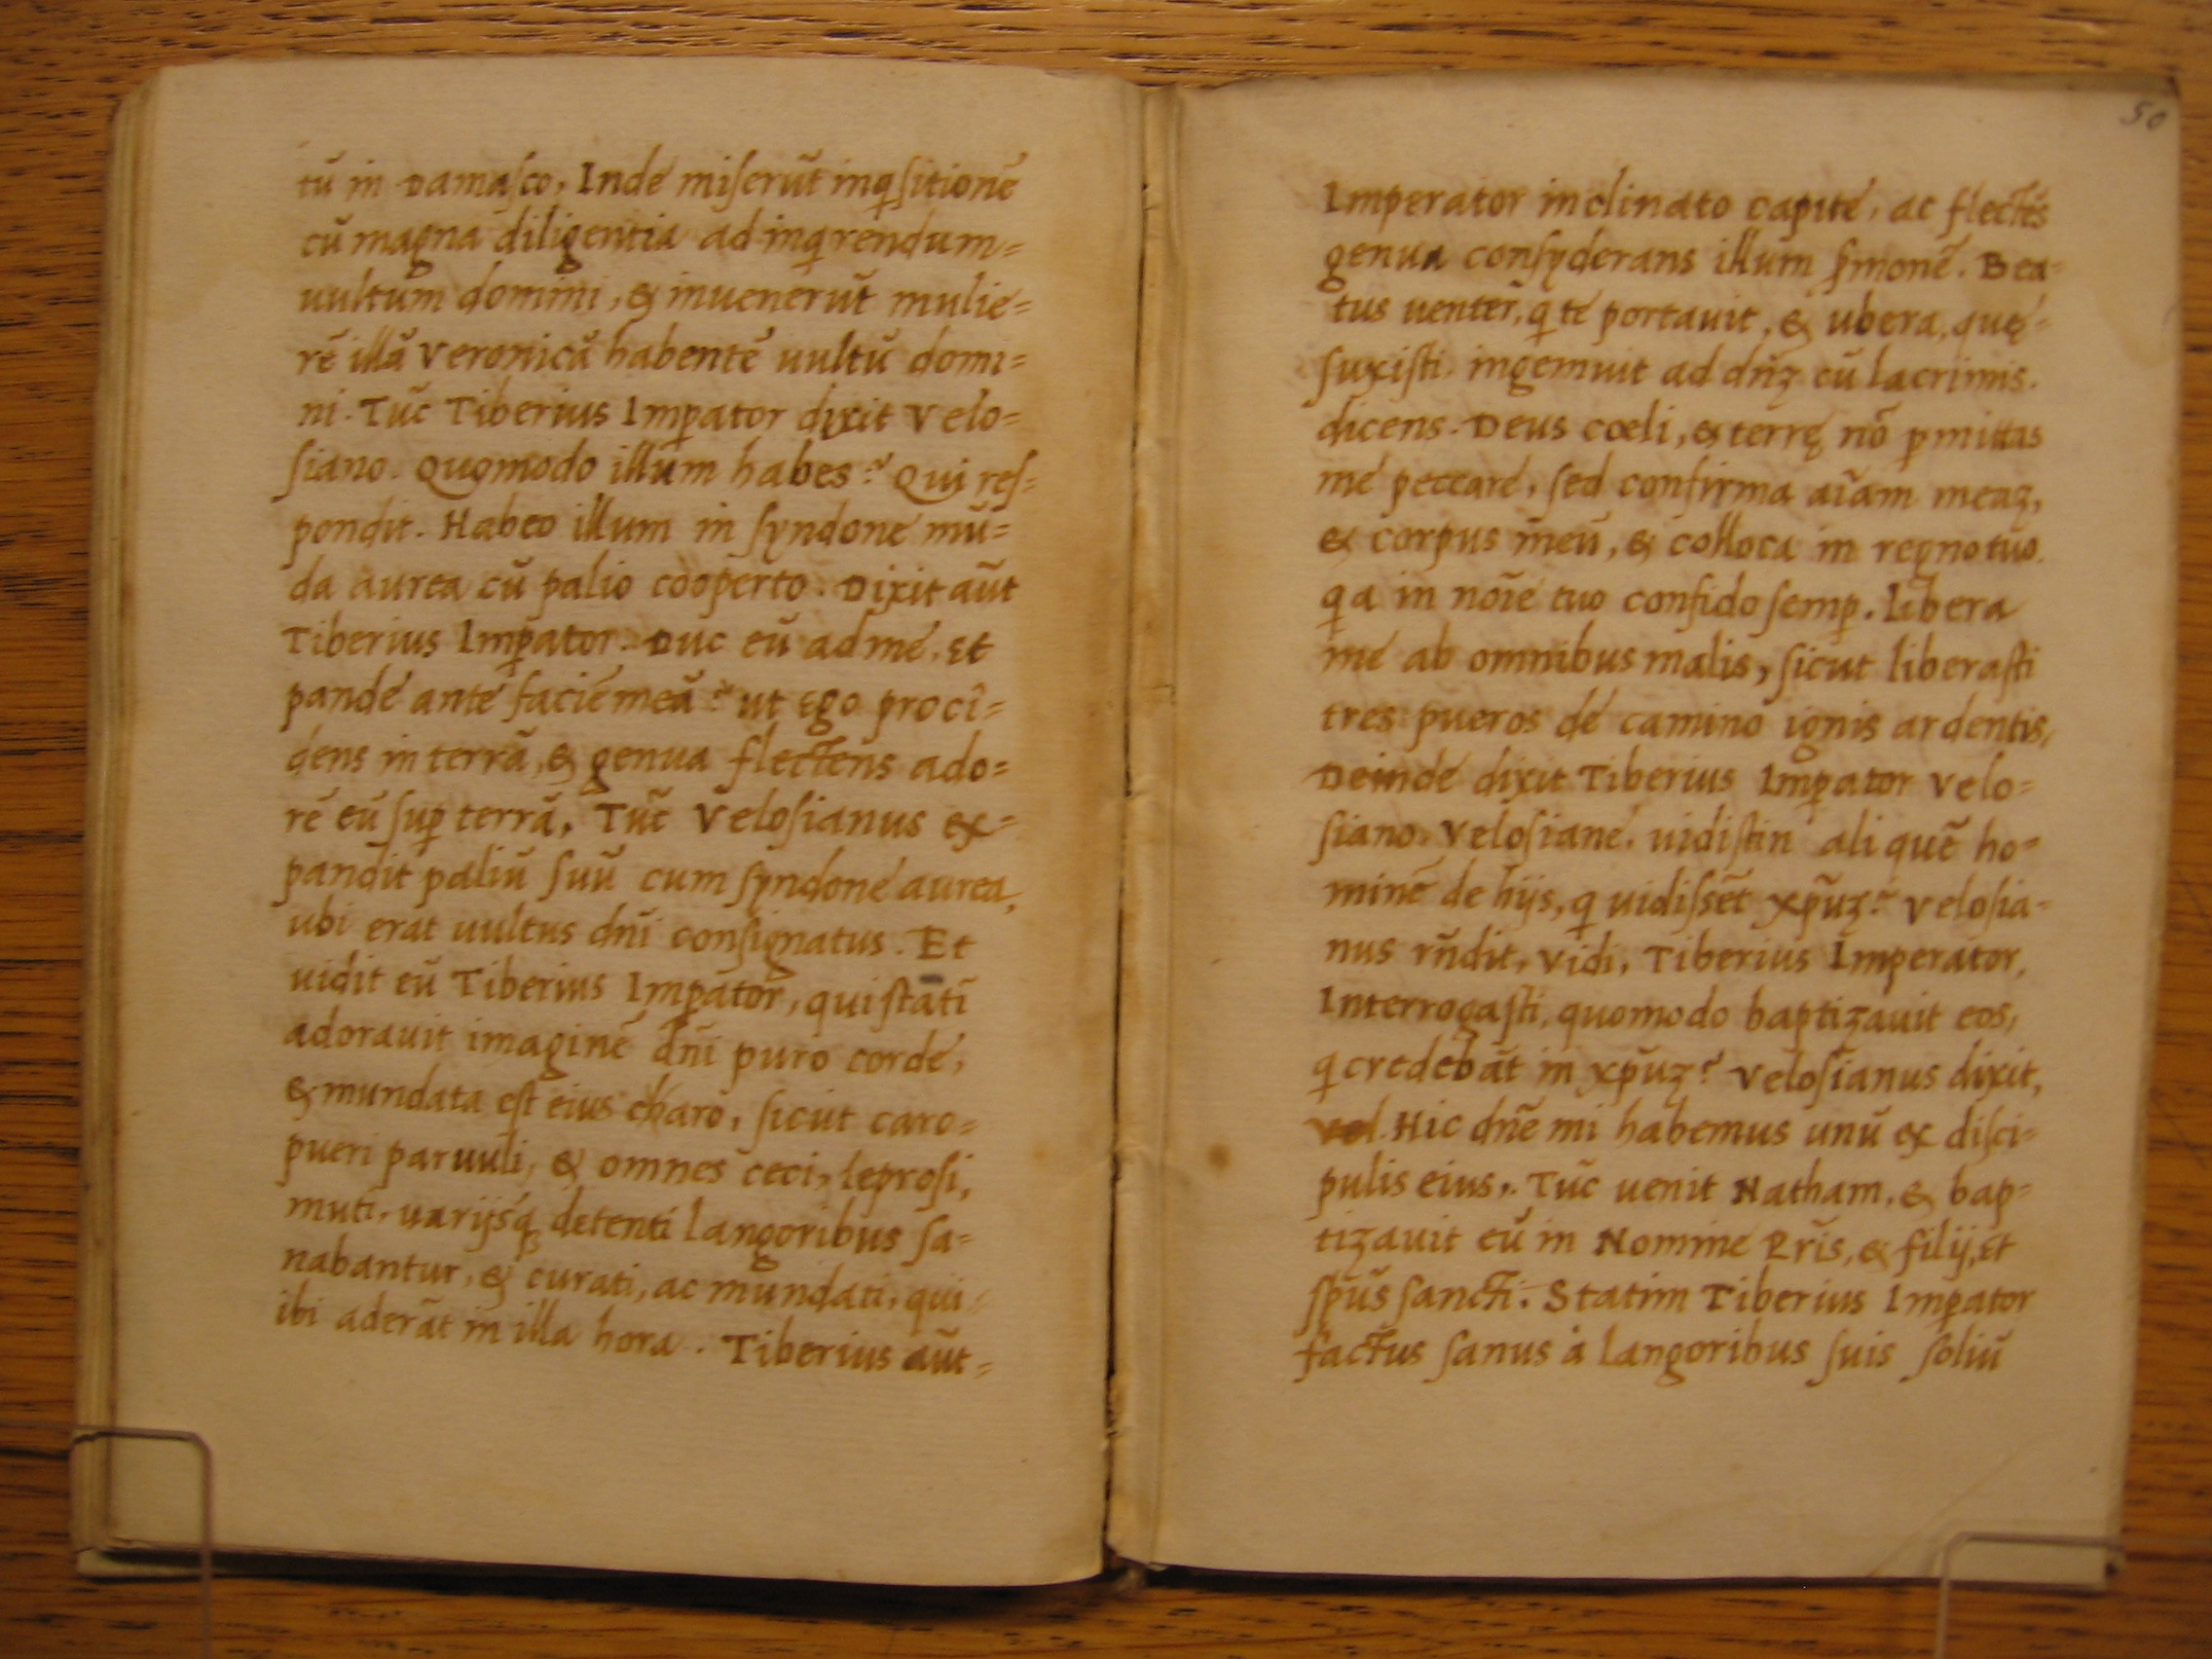 tũ in Damasco, Inde miserũt inqsitionẽ
cũ magna diligentia ad inqrendum=
uultum domini, & inuenerũt mulie=
rẽ illã veronicã habentẽ uultũ domi=
ni. Tũc Tiberius Impator dixit velo=
siano. Quomodo illum habes? Qui res=
pondit. Habeo illum in syndone mũ=
da aurea cũ palio cooperto. Dixit aũt
Tiberius Impator. Duc eũ ad me. Et
pande ante faciẽ meã? ut Ego procî=
dens in terrã, & genua flectens ado=
rẽ eũ sup terrã, Tũc Velosianus ex=
pandit paliũ suũ cum syndone aurea,
ubi erat uultus dñi consignatus. Et
uidit eũ Tiberius Impator, qui statĩ
adorauit imaginẽ dñi puro corde,
& mundata est eius charo, sicut caro=
pueri paruuli, & omnes ceci, leprosi,
muti, uarijsq detenti langoribus sa=
nabantur, & curati, ac mundati, qui=
ibi aderãt in illa hora. Tiberius aũt=
50
Imperator inclinato capite, ac flectẽs
genua consyderans illum smonẽ. Bea=
tus uenter, q te portauit, & ubera, quę=
suxisti. ingemuit ad dñʒ cũ lacrimis.
dicens. Deus cœli, & terrę nõ pmittas
me peccare, sed confirma aĩam meaʒ,
& corpus meũ, & colloca in regno tuo.
qa in noĩe tuo confido semp. Libera
me ab omnibus malis, sicut liberasti
tres pueros de camino ignis ardentis,
Deinde dixit Tiberius Impator velo=
siano. Velosiane. uidistin aliquẽ ho=
minẽ de hijs, q uidissẽt xp̃uʒ? velosia=
nus rñdit, vidi, Tiberius Imperator,
Interrogasti, quomodo baptizauit eos,
q credebãt in xp̃uʒ? Velosianus dixit,
vel. Hic dñe mi habemus unũ ex disci=
pulis eius,. Tũc uenit Natham, & bap=
tizauit eũ in Nomine Pr̃is, & filij, Et
sp̃us sancti. Statim Tiberius Impator
factus sanus à langoribus suis soliũ